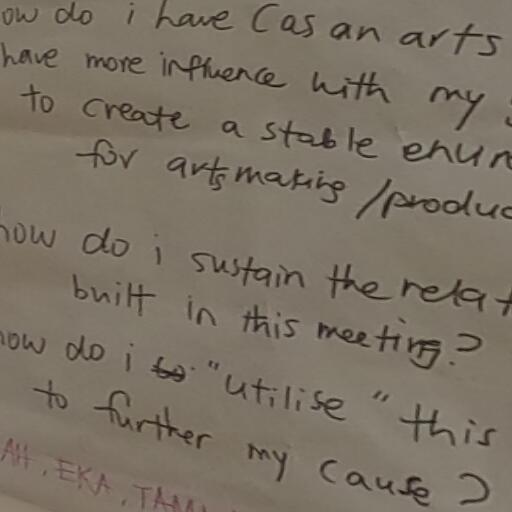 ow do i have (as an arts
have more influence with my
to create a stable
for arts making / produc
how do i sustain the relat
built in this meeting?
how do i "utilise" this
to further my cause?
AH, EKA,